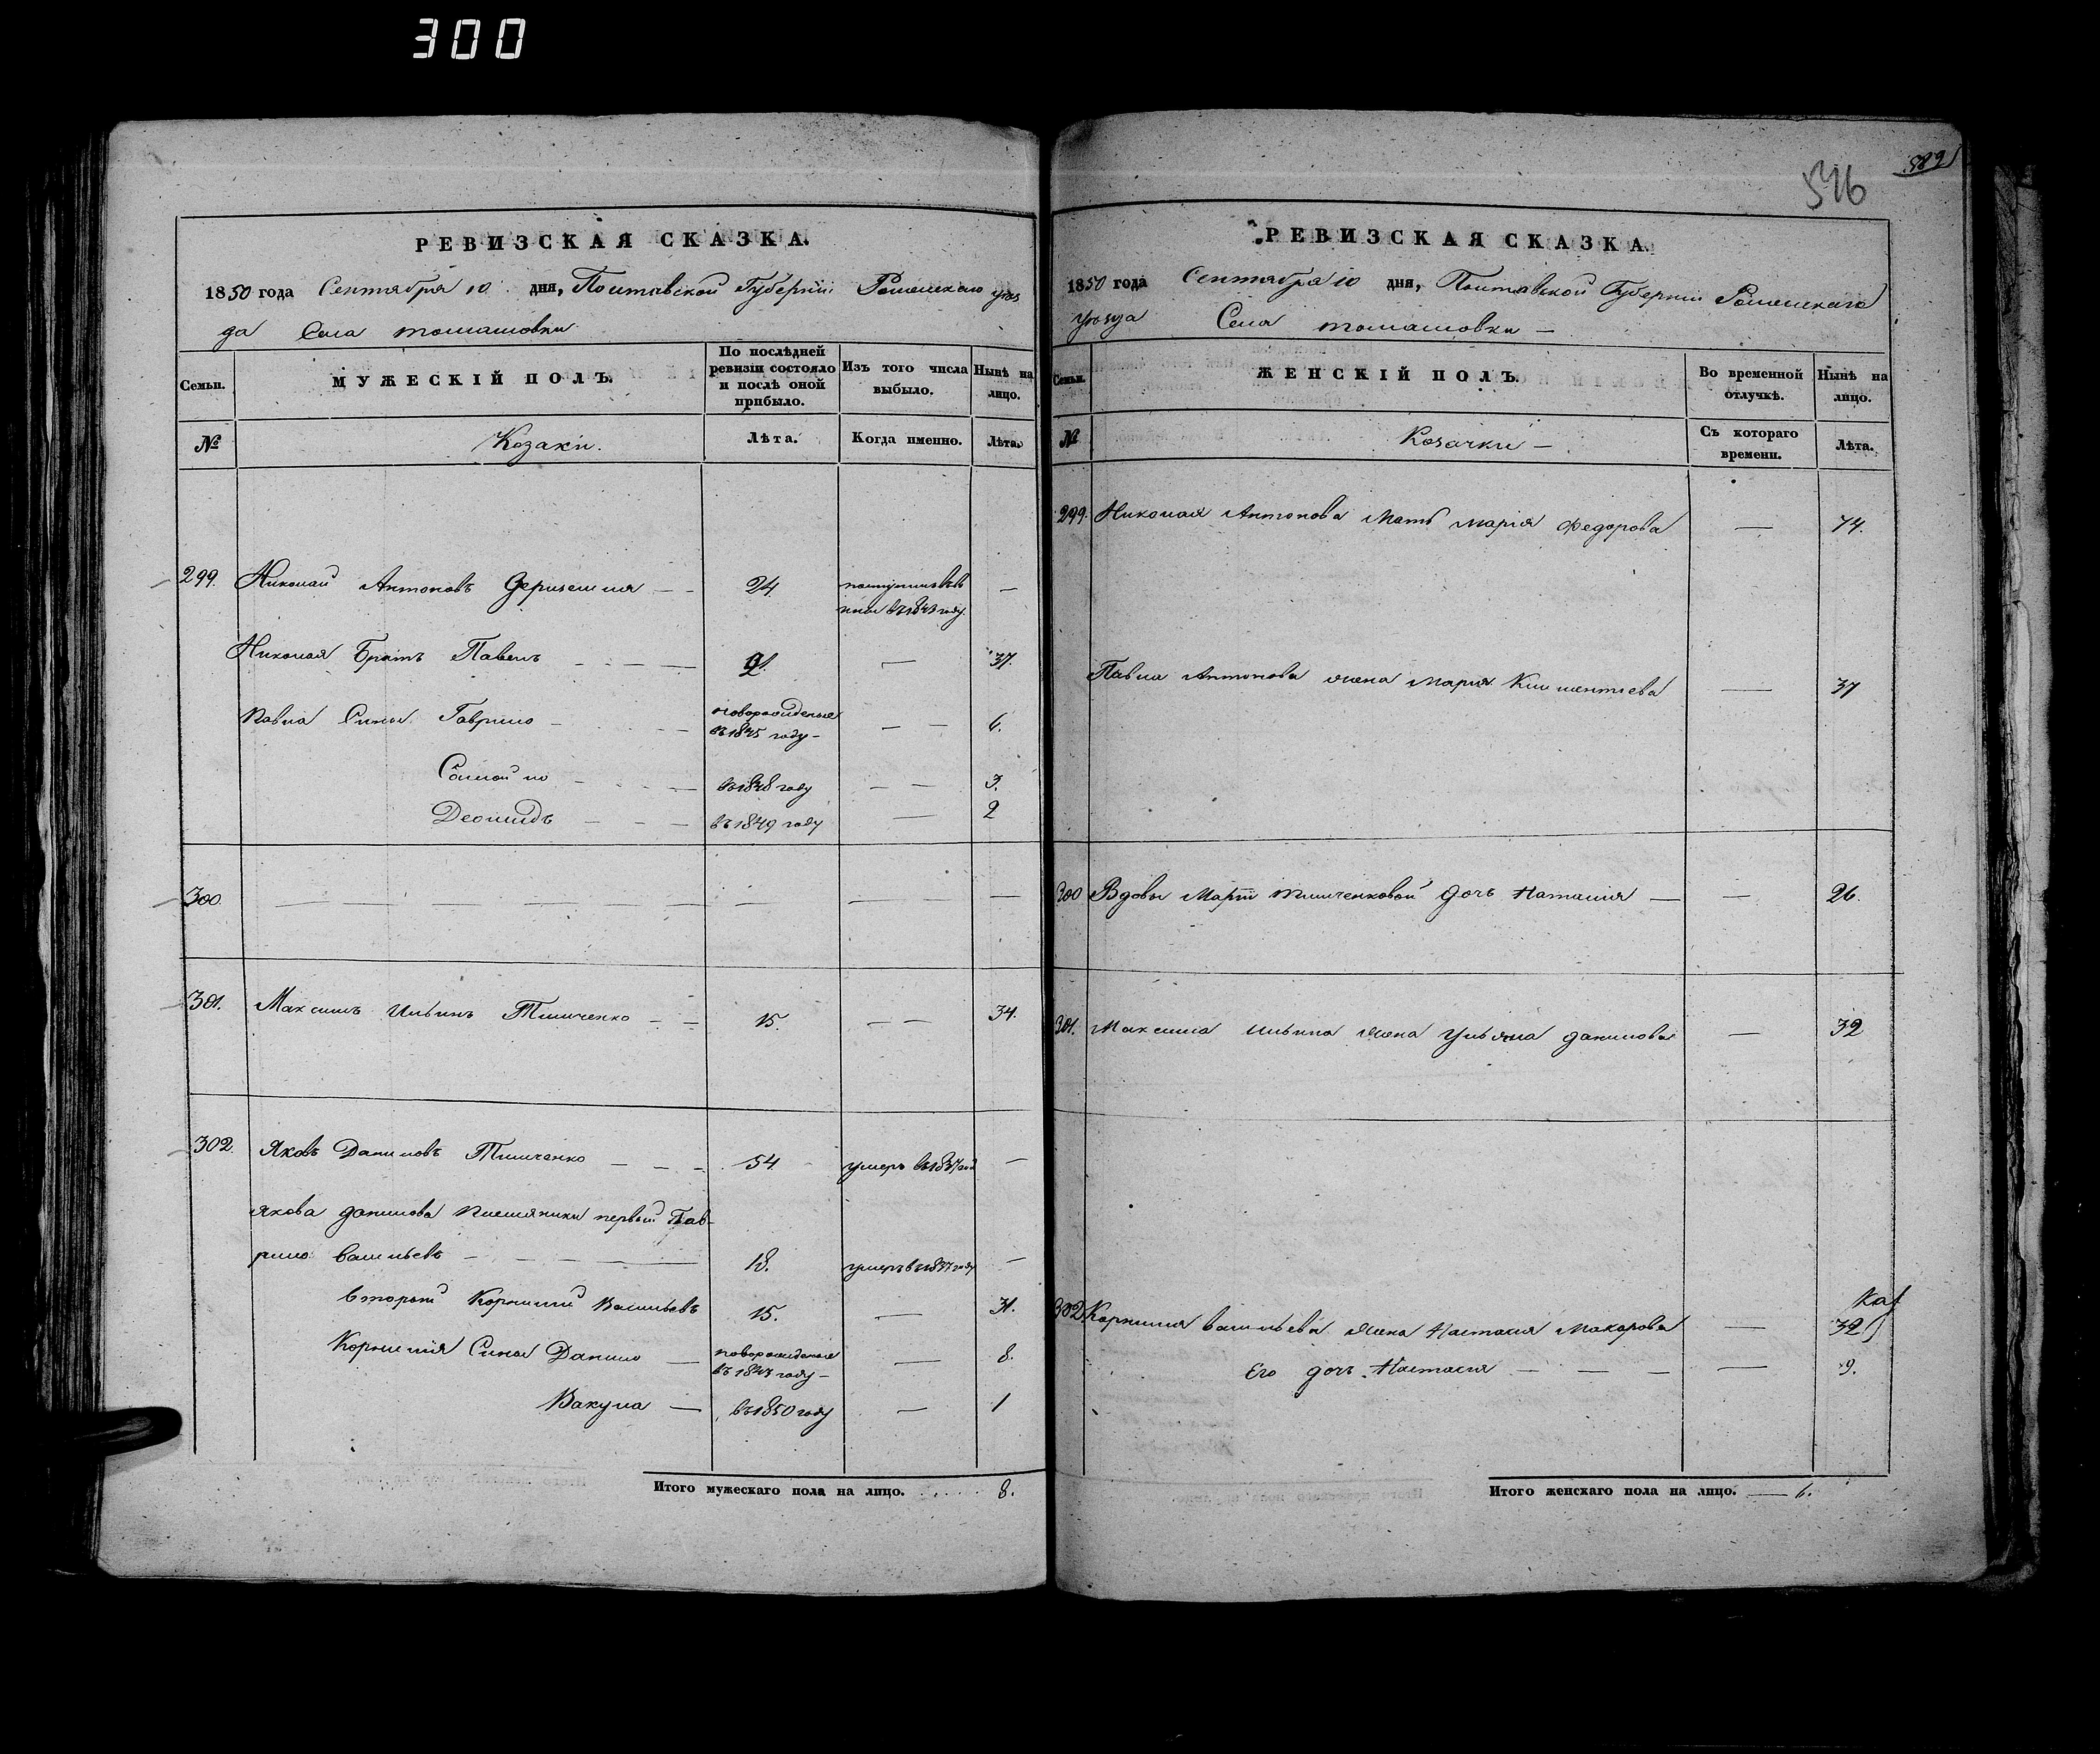 300
РЕВИЗСКАЯ СКАЗКА.
1850 года Сентября 10 дня, Полтавской Губерніи Роменскаго уез
да Села томашовки
Семьи.
МУЖЕСКІЙ ПОЛЪ.
По послѣдней ревизіи состояло и послѣ оной прибыло.
Изъ того числа выбыло.
Нынѣ на лицо.
№
Козаки.
Лѣта.
Когда именно.
Лѣта.
299. Николай Антоновъ 24. —
въ 1843 году.
Николая Братъ Павелъ — 21. — 37.
Павла Сины Гаврило — новорожденые въ 1845 году — — 6.
Самойло — въ 1848 году — 3.
Леонидъ — въ 1849 году — 2
300. — — — —
301. Максимъ Ильинъ Тимченко — 15. — 34.
302. Яковъ Даниловъ Тимченко — 54. умеръ въ 1837 год —
Якова данилова племяники первый Гав-
рило васильевъ — 18. умеръ въ 1837 году —
вторый Корнилий Васильевъ 15. — 31.
Корнилія Сины Данило — новорожденые въ 1843 году — — 8.
Вакула — въ 1850 году — 1
Итого мужескаго пола на лицо. 8.
589
516
РЕВИЗСКАЯ СКАЗКА.
1850 года Сентября 10 дня, Полтавской Губерніи Роменскаго
уезда Села томашовки —
Семьи.
ЖЕНСКІЙ ПОЛЪ.
Во временной отлучкѣ.
Нынѣ на лицо.
№
Козачки —
Съ котораго времени.
Лѣта.
299. Николая Антонова Мать марія Федорова — 74.
Павла Антонова жена Марія Климентиева — 37
300 Вдовы Маріи тимченковой дочь Наталия — — 26.
301. Максима ильина жена Ульяна данилова — 32
302 Корнилия васильева жена Настасия Макарова — 32
Его дочь Настасия — — — 9.
Итого женскаго пола на лицо. — 6.